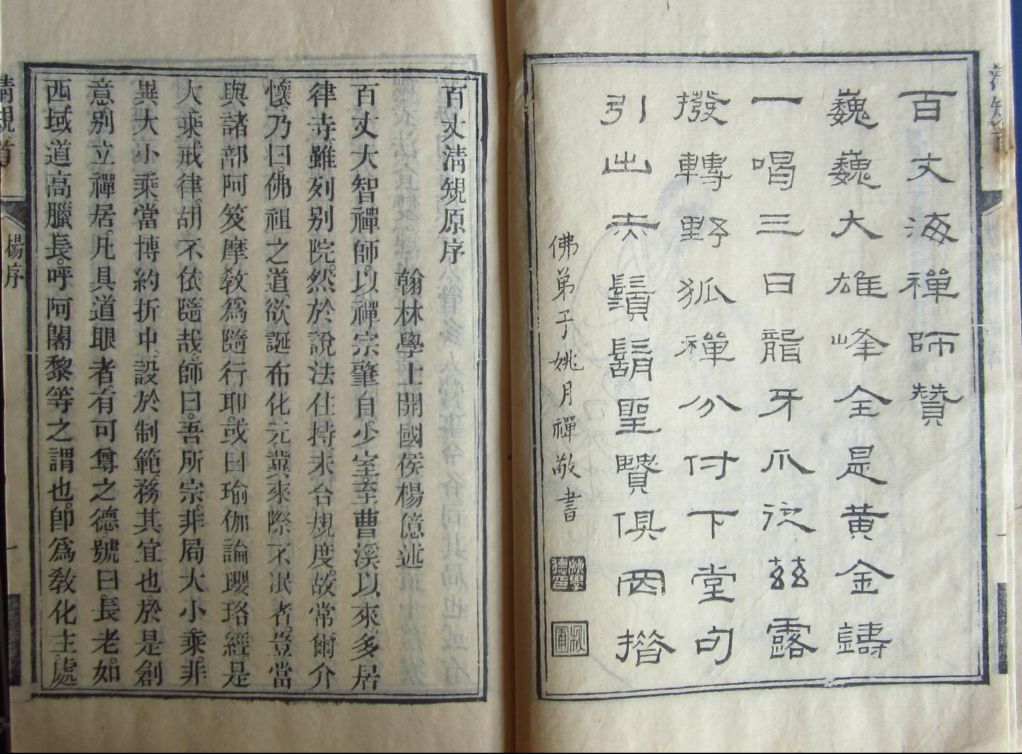 百丈海禪師贊
巍巍大雄峰全是黃金鑄
一喝三日聾牙爪從茲露
撥轉野狐禪分付下堂句
引出赤鬚鬍聖賢俱罔措
佛弟子姚月禪敬書
百丈清規原序
翰林學士開國侯楊億述
百丈大智禪師。以禪宗肇自少室。至曹溪以來多居
律寺。雖列別院。然於說法住持未合規度。故常爾介
懷。乃曰。佛祖之道。欲誕布化元。冀來際不泯者。豈當
與諸部阿笈摩教。為隨行耶。或曰。瑜伽論瓔珞經是
大乘戒律。胡不依隨哉。師曰。吾所宗。非局大小乘。非
異大小乘。當博約折中。設於制範。務其宜也。於是創
意別立禪居。凡具道眼者。有可尊之德。號曰長老。如
西域道高臘長。呼阿闍黎等之謂也。即為教化主。處
清規 首
楊序
一